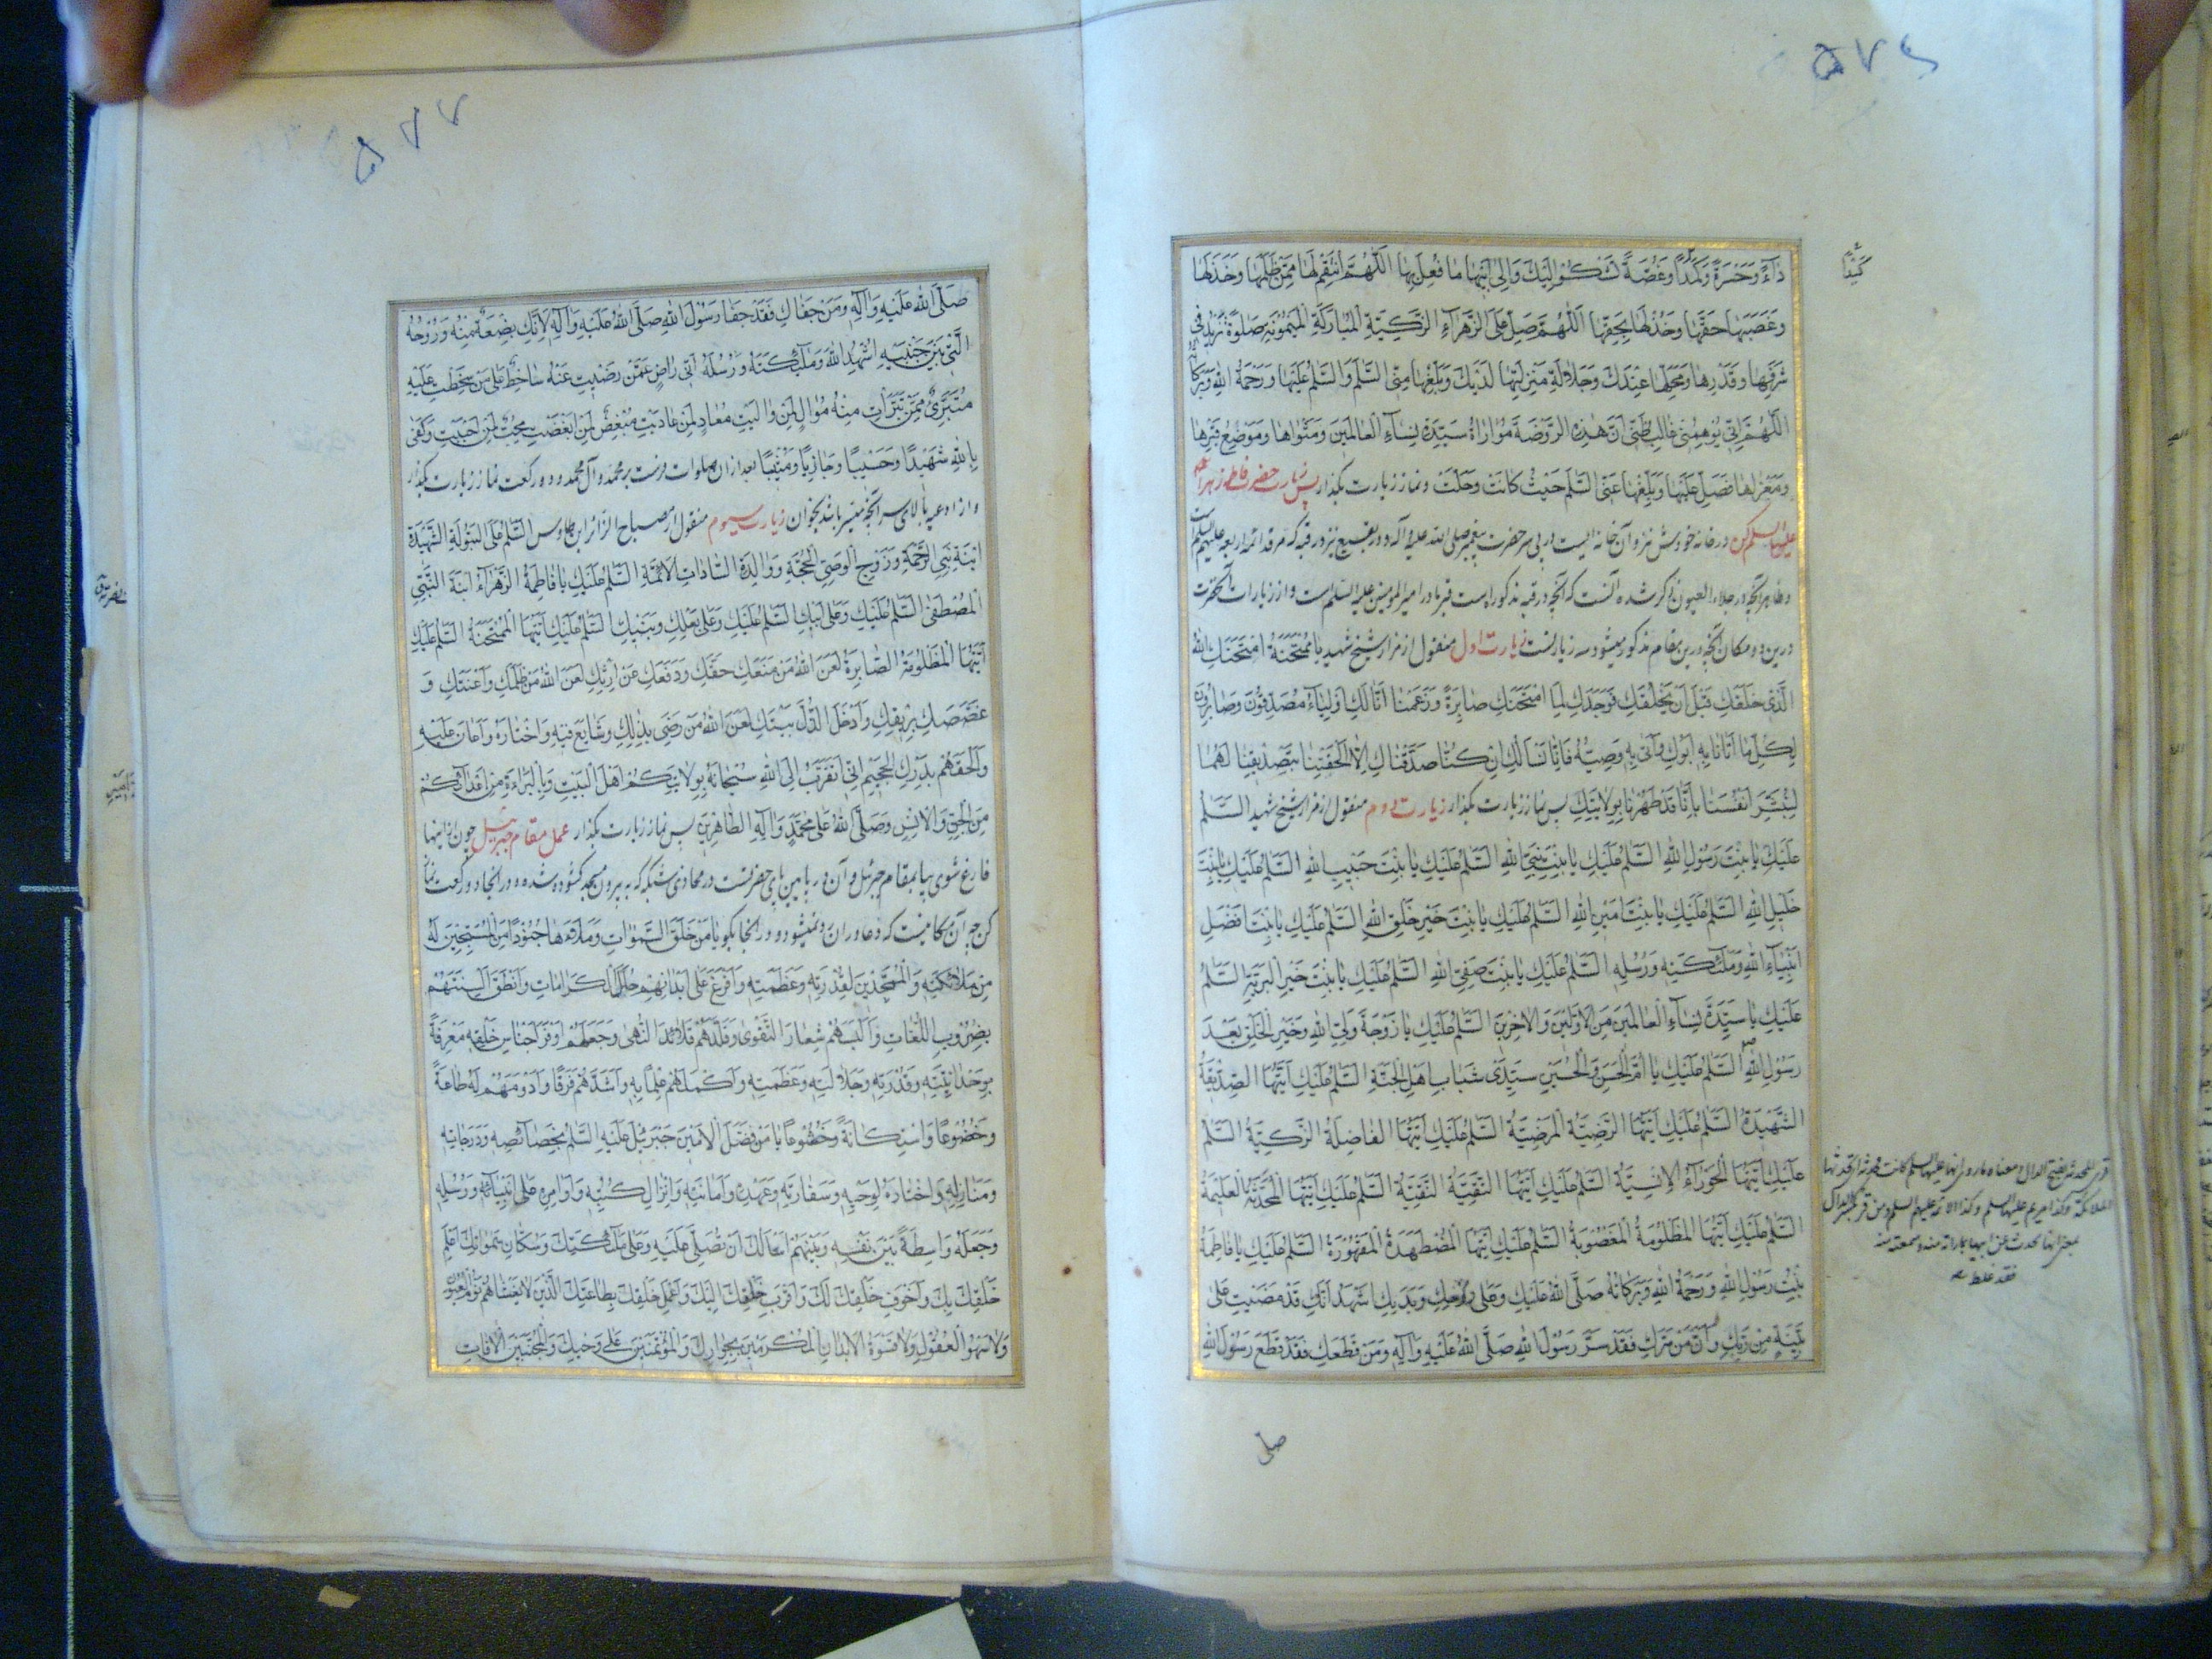 دآءً وَحَسْرَةً وَكَمَدًا وَغُصَّةً تَشْكُو اِلَيْكَ وَاِلىٰ اَبيهٰا مٰا فُعِلَ بِهٰا اَللّٰهُمَّ انْتَقِمْ لَهٰا مِمَّنْ ظَلَمَهٰا وَخَذَلَهٰا
وَغَصَبَهٰا حَقَّهٰا وَخُذْ لَهٰا بِحَقِّهٰا اَللّٰهُمَّ صَلِّ عَلَى الزَّهْرٰآءِ الزَّكِيَّةِ الْمُبٰارَكَةِ الْمَيْمُونَةِ صَلٰوةً تَزيدُ في
شَرَفِهٰا وَقَدْرِهٰا وَمَحَلِّهٰا عِنْدَكَ وَجَلٰالَةِ مَنْزِلَتِهٰا لَدَيْكَ وَبَلِّغْهٰا مِنِّي السَّلٰمَ وَالسَّلٰمُ عَلَيْهٰا وَرَحْمَةُ اللهِ وَبَرَكٰاتُهُ
اَللّٰهُمَّ اِنّي يُوهِمُني غٰالِبُ ظَنّي اَنَّ هٰذِهِ الرَّوْضَةَ مُوٰارٰاةُ سَيِّدَةِ نِسٰآءِ الْعٰالَمينَ وَمَثْوٰاهٰا وَمَوْضِعُ قَبْرِهٰا
وَمَغْزٰاهٰا فَصَلِّ عَلَيْهٰا وَبَلِّغْهٰا عَنِّي السَّلٰمَ حَيْثُ كٰانَتْ وَحَلَّتْ ونماز زيارت بگذار پس زيارت حضرت فاطمه زهرا
عليها السلم كن در خانه خودش نيز وآن خانه ايست در پى سر حضرت پيغمبر صلى الله عليه وآله ودر بقيع نيز در قبه كه مرقد ائمه اربعه عليهم السلم است
وظاهر آنچه در جلاء العيون ذكر شده آنست كه آنچه در قبه مذكور است قبر مادر امير المؤمنين عليه السلم است واز زيارات آنحضرت
درين دو مكان آنچه درين مقام مذكور ميشود سه زيارتست زيارت اول منقول از مزار شيخ شهيد يٰا مُمْتَحَنَةُ امْتَحَنَكِ اللهُ
الَّذي خَلَقَكِ قَبْلَ اَنْ يَخْلُقَكِ فَوَجَدَكِ لِمَا امْتَحَنَكِ صٰابِرَةً وَزَعَمْنٰا اَنّٰا لَكِ اَوْلِيٰآءُ مُصَدِّقُونَ وَصٰابِرُونَ
لِكُلِّ مٰا اَتٰانٰا بِهِ اَبُوكِ وَاَتىٰ بِهِ وَصِيُّهُ فَاِنّٰا نَسْأَلُكِ اِنْ كُنّٰا صَدَّقْنٰاكِ اِلّٰا اَلْحَقْتِنٰا بِتَصْديقِنٰا لَهُمٰا
لِنُبَشِّرَ اَنْفُسَنٰا بِاَنّٰا قَدْ طَهُرْنٰا بِوِلٰايَتِكِ پس نماز زيارت بگذار زيارت دوم منقول از مزار شيخ شهيد السَّلٰمُ
عَلَيْكِ يٰا بِنْتَ رَسُولِ اللهِ السَّلٰمُ عَلَيْكِ يٰا بِنْتَ نَبِيِّ اللهِ السَّلٰمُ عَلَيْكِ يٰا بِنْتَ حَبيبِ اللهِ السَّلٰمُ عَلَيْكِ يٰا بِنْتَ
خَليلِ اللهِ السَّلٰمُ عَلَيْكِ يٰا بِنْتَ اَمينِ اللهِ السَّلٰمُ عَلَيْكِ يٰا بِنْتَ خَيْرِ خَلْقِ اللهِ السَّلٰمُ عَلَيْكِ يٰا بِنْتَ اَفْضَلِ
اَنْبِيٰآءِ اللهِ وَمَلٰٓئِكَتِهِ وَرُسُلِهِ السَّلٰمُ عَلَيْكِ يٰا بِنْتَ صَفِيِّ اللهِ السَّلٰمُ عَلَيْكِ يٰا بِنْتَ خَيْرِ الْبَرِيَّةِ السَّلٰمُ
عَلَيْكِ يٰا سَيِّدَةَ نِسٰآءِ الْعٰالَمينَ مِنَ الْاَوَّلينَ وَالْاٰخِرينَ السَّلٰمُ عَلَيْكِ يٰا زَوْجَةَ وَلِيِّ اللهِ وَخَيْرِ الْخَلْقِ بَعْدَ
رَسُولِ اللهِ السَّلٰمُ عَلَيْكِ يٰا اُمَّ الْحَسَنِ وَالْحُسَيْنِ سَيِّدَيْ شَبٰابِ اَهْلِ الْجَنَّةِ السَّلٰمُ عَلَيْكِ اَيَّتُهَا الصِّدّيقَةُ
الشَّهيدَةُ السَّلٰمُ عَلَيْكِ اَيَّتُهَا الرَّضِيَّةُ الْمَرْضِيَّةُ السَّلٰمُ عَلَيْكِ اَيَّتُهَا الْفٰاضِلَةُ الزَّكِيَّةُ السَّلٰمُ
عَلَيْكِ اَيَّتُهَا الْحَوْرٰآءُ الْاِنْسِيَّةُ السَّلٰمُ عَلَيْكِ اَيَّتُهَا التَّقِيَّةُ النَّقِيَّةُ السَّلٰمُ عَلَيْكِ اَيَّتُهَا الْمُحَدَّثَةُ الْعَليمَةُ
السَّلٰمُ عَلَيْكِ اَيَّتُهَا الْمَظْلُومَةُ الْمَغْصُوبَةُ السَّلٰمُ عَلَيْكِ اَيَّتُهَا الْمُضْطَهَدَةُ الْمَقْهُورَةُ السَّلٰمُ عَلَيْكِ يٰا فٰاطِمَةُ
بِنْتَ رَسُولِ اللهِ وَرَحْمَةُ اللهِ وَبَرَكٰاتُهُ صَلَّى اللهُ عَلَيْكِ وَعَلىٰ رُوحِكِ وَبَدَنِكِ اَشْهَدُ اَنَّكِ قَدْ مَضَيْتِ عَلىٰ
بَيِّنَةٍ مِنْ رَبِّكِ وَاَنَّ مَنْ سَرَّكِ فَقَدْ سَرَّ رَسُولَ اللهِ صَلَّى اللهُ عَلَيْهِ وَاٰلِهِ وَمَنْ قَطَعَكِ فَقَدْ قَطَعَ رَسُولَ اللهِ
صلى
صَلَّى اللهُ عَلَيْهِ وَاٰلِهِ وَمَنْ جَفٰاكِ فَقَدْ جَفٰا رَسُولَ اللهِ صَلَّى اللهُ عَلَيْهِ وَاٰلِهِ لِاَنَّكِ بِضْعَةٌ مِنْهُ وَرُوحُهُ
الَّتي بَيْنَ جَنْبَيْهِ اُشْهِدُ اللهَ وَمَلٰٓئِكَتَهُ وَرُسُلَهُ اَنّي رٰاضٍ عَمَّنْ رَضيتِ عَنْهُ سٰاخِطٌ عَلىٰ مَنْ سَخِطْتِ عَلَيْهِ
مُتَبَرِّئٌ مِمَّنْ تَبَرَّأْتِ مِنْهُ مُوٰالٍ لِمَنْ وٰالَيْتِ مُعٰادٍ لِمَنْ عٰادَيْتِ مُبْغِضٌ لِمَنْ اَبْغَضْتِ مُحِبٌّ لِمَنْ اَحْبَبْتِ وَكَفىٰ
بِاللهِ شَهيدًا وَحَسيبًا وَجٰازِيًا وَمُثيبًا بعد از آن صلوات فرست بر محمد وآل محمد ودو ركعت نماز زيارت بگذار
واز ادعيه بالاى سر آنچه متيسر باشد بخوان زيارت سيوم منقول از مصباح الزائر ابن طاوس السَّلٰمُ عَلَى الْبَتُولَةِ الشَّهيدَةِ
ابْنَةِ نَبِيِّ الرَّحْمَةِ وَزَوْجِ الْوَصِيِّ الْحُجَّةِ وَوٰالِدَةِ السّٰادٰاتِ الْاَئِمَّةِ السَّلٰمُ عَلَيْكِ يٰا فٰاطِمَةُ الزَّهْرٰآءُ ابْنَةَ النَّبِيِّ
الْمُصْطَفىٰ السَّلٰمُ عَلَيْكِ وَعَلىٰ اَبيكِ السَّلٰمُ عَلَيْكِ وَعَلىٰ بَعْلِكِ وَبَنيكِ السَّلٰمُ عَلَيْكِ اَيَّتُهَا الْمُمْتَحَنَةُ السَّلٰمُ عَلَيْكِ
اَيَّتُهَا الْمَظْلُومَةُ الصّٰابِرَةُ لَعَنَ اللهُ مَنْ مَنَعَكِ حَقَّكِ وَدَفَعَكِ عَنْ اِرْثِكِ لَعَنَ اللهُ مَنْ ظَلَمَكِ وَاَعْنَتَكِ وَ
غَصَّصَكِ بِريقِكِ وَاَدْخَلَ الذُّلَّ بَيْتَكِ لَعَنَ اللهُ مَنْ رَضِيَ بِذٰلِكِ وَشٰايَعَ فيهِ وَاخْتٰارَهُ وَاَعٰانَ عَلَيْهِ
وَاَلْحَقَهُمْ بِدَرْكِ الْجَحيمِ اِنّي اَتَقَرَّبُ اِلَى اللهِ سُبْحٰانَهُ بِوِلٰايَتِكُمْ اَهْلَ الْبَيْتِ وَبِالْبَرٰآءَةِ مِنْ اَعْدٰآئِكُمْ
مِنَ الْجِنِّ وَالْاِنْسِ وَصَلَّى اللهُ عَلىٰ مُحَمَّدٍ وَاٰلِهِ الطّٰاهِرينَ پس نماز زيارت بگذار عمل مقام جبرئيل چون از اينها
فارغ شوى بيا بمقام جبرئيل وآن در پايين پاى حضرتست در محاذى شبكه كه به بيرون مسجد گشوده شده ودر انجا دو ركعت نماز
كن چه آن مكانيست كه دعا در ان رد نميشود ودر انجا بگو يٰا مَنْ خَلَقَ السَّمٰوٰاتِ وَمَلَاَهٰا جُنُودًا مِنَ الْمُسَبِّحينَ لَهُ
مِنْ مَلٰٓئِكَتِهِ وَالْمُمَجِّدينَ لِقُدْرَتِهِ وَعَظَمَتِهِ وَاَفْرَغَ عَلىٰ اَبْدٰانِهِمْ حُلَلَ الْكَرٰامٰاتِ وَاَنْطَقَ اَلْسِنَتَهُمْ
بِضُرُوبِ اللُّغٰاتِ وَاَلْبَسَهُمْ شِعٰارَ التَّقْوىٰ وَقَلَّدَهُمْ قَلٰآئِدَ النُّهىٰ وَجَعَلَهُمْ اَوْفَرَ اَجْنٰاسِ خَلْقِهِ مَعْرِفَةً
بِوَحْدٰانِيَّتِهِ وَقُدْرَتِهِ وَجَلٰالَتِهِ وَعَظَمَتِهِ وَاَكْمَلَهُمْ عِلْمًا بِهِ وَاَشَدَّهُمْ فَرَقًا وَاَدْوَمَهُمْ لَهُ طٰاعَةً
وَخُضُوعًا وَاسْتِكٰانَةً وَخُشُوعًا يٰا مَنْ فَضَّلَ الْاَمينَ جَبْرَئيلَ عَلَيْهِ السَّلٰمُ بِخَصٰآئِصِهِ وَدَرَجٰاتِهِ
وَمَنٰازِلِهِ وَاخْتٰارَهُ لِوَحْيِهِ وَسَفٰارَتِهِ وَعَهْدِهِ وَاَمٰانَتِهِ وَاِنْزٰالِ كُتُبِهِ وَاَوٰامِرِهِ عَلىٰ اَنْبِيٰآئِهِ وَرُسُلِهِ
وَجَعَلَهُ وٰاسِطَةً بَيْنَ نَفْسِهِ وَبَيْنَهُمْ اَسْأَلُكَ اَنْ تُصَلِّيَ عَلَيْهِ وَعَلىٰ مَلٰٓئِكَتِكَ وَسُكّٰانِ سَمٰوٰاتِكَ اَعْلَمِ
خَلْقِكَ بِكَ وَاَخْوَفِ خَلْقِكَ لَكَ وَاَقْرَبِ خَلْقِكَ اِلَيْكَ وَاَعْمَلِ خَلْقِكَ بِطٰاعَتِكَ الَّذينَ لٰا يَغْشٰاهُمْ نَوْمُ الْعُيُونِ
وَلٰا سَهْوُ الْعُقُولِ وَلٰا فَتْرَةُ الْاَبْدٰانِ الْمُكَرَّمينَ بِجِوٰارِكَ وَالْمُؤْتَمَنينَ عَلىٰ وَحْيِكَ وَالْمُجْتَنِبينَ الْاٰفٰاتِ